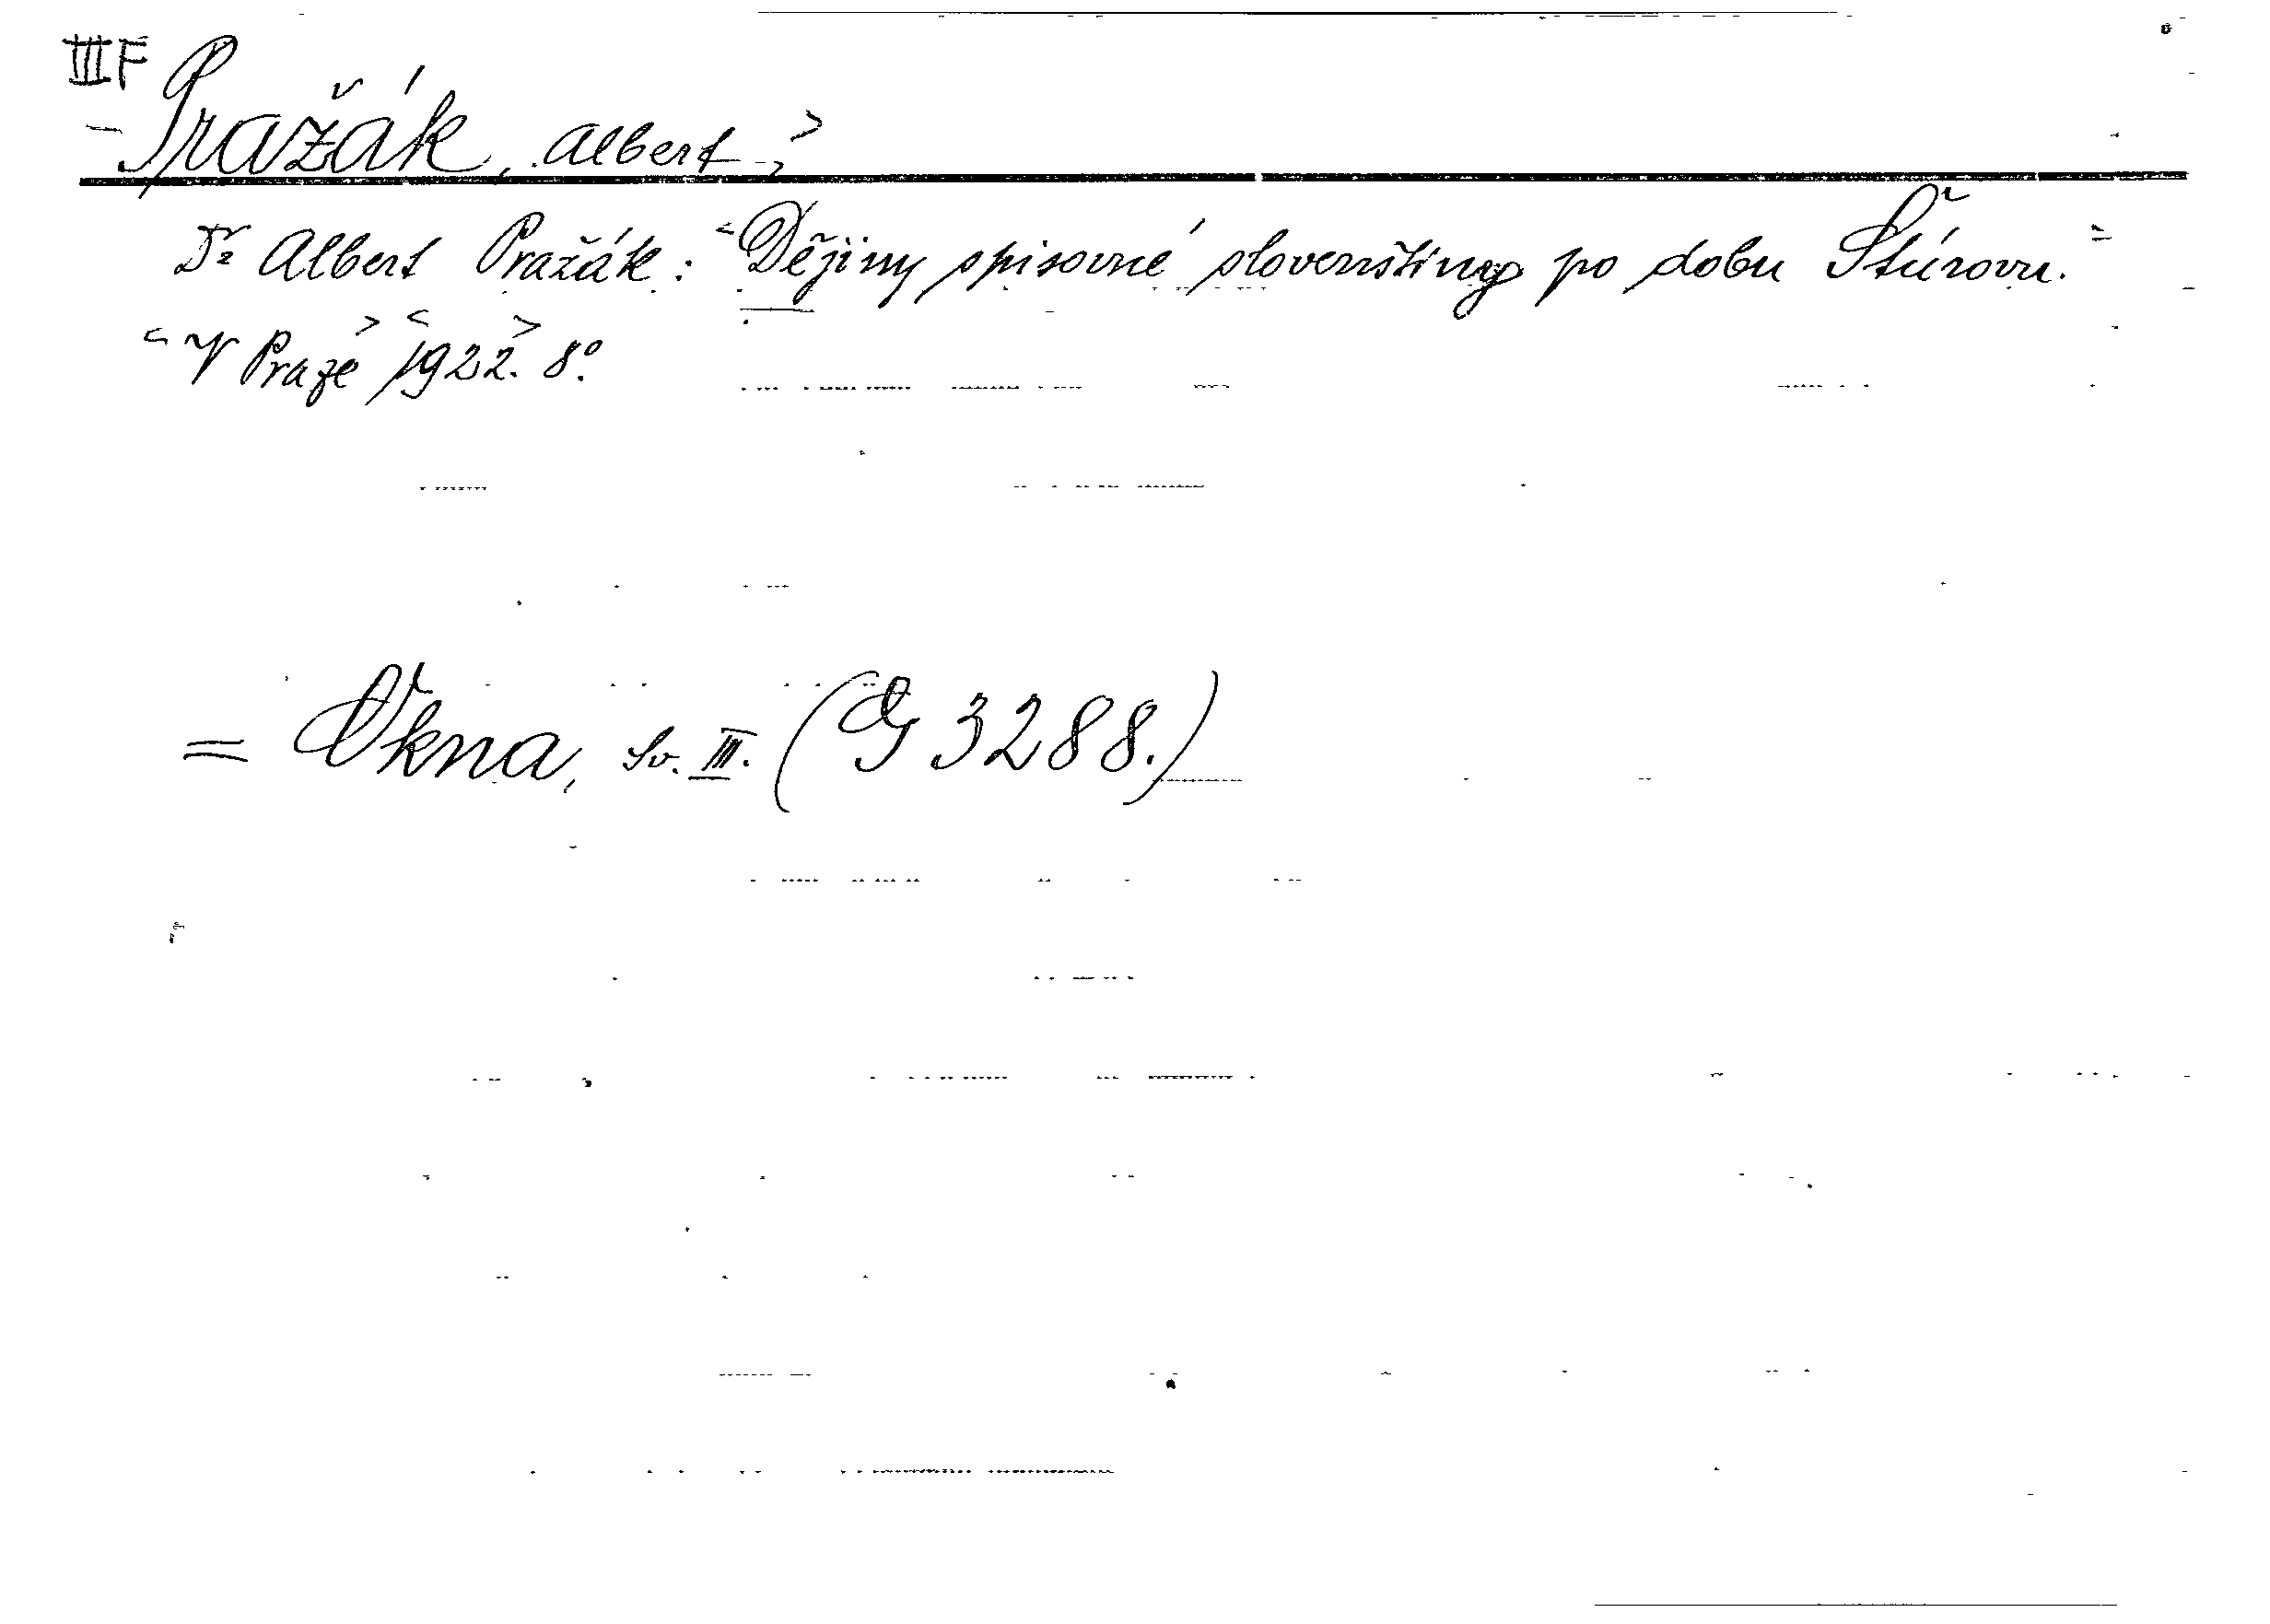 III F
Pražák, Albert.
Dr Albert Pražák: Dějiny spisovné slovenštiny po dobu Štúrovu.
V Praze 1922. 8°.
= Okna, sv. III. (G 3288.)